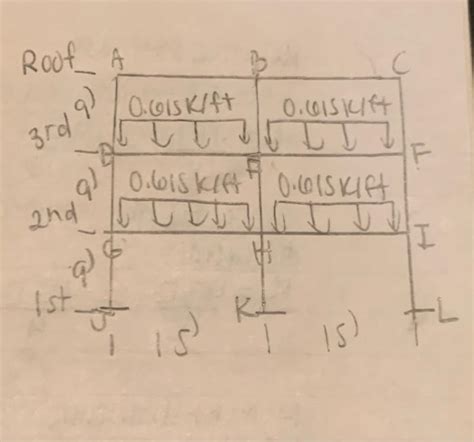 Roof A B C
9'
0.615k/ft 0.615k/ft
3rd
D E F
9'
0.615k/ft 0.615k/ft
2nd
G H I
9'
1st J K L
15' 15'